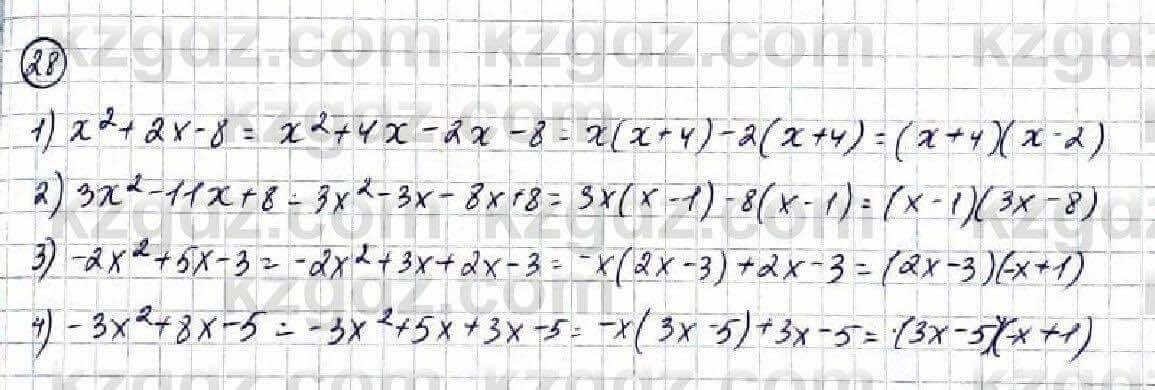 kzgdz.com kzgdz.com kzgdz
28
1) x²+2x-8 = x²+4x-2x-8 = x(x+4)-2(x+4) = (x+4)(x-2)
2) 3x²-11x+8 = 3x²-3x-8x+8 = 3x(x-1)-8(x-1) = (x-1)(3x-8)
3) -2x²+5x-3 = -2x²+3x+2x-3 = -x(2x-3)+2x-3 = (2x-3)(-x+1)
4) -3x²+8x-5 = -3x²+5x+3x-5 = -x(3x-5)+3x-5 = (3x-5)(-x+1)